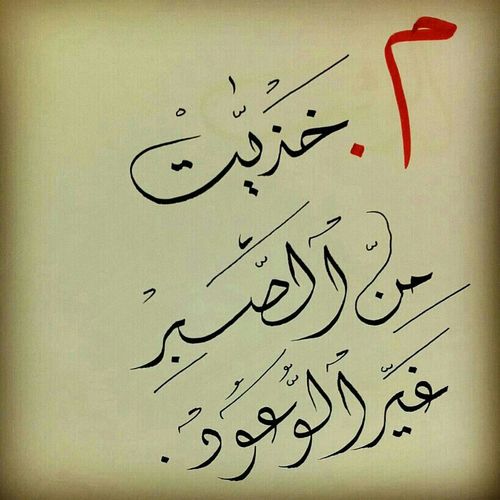 م. خذيت
من الصبر
غير الوعود.